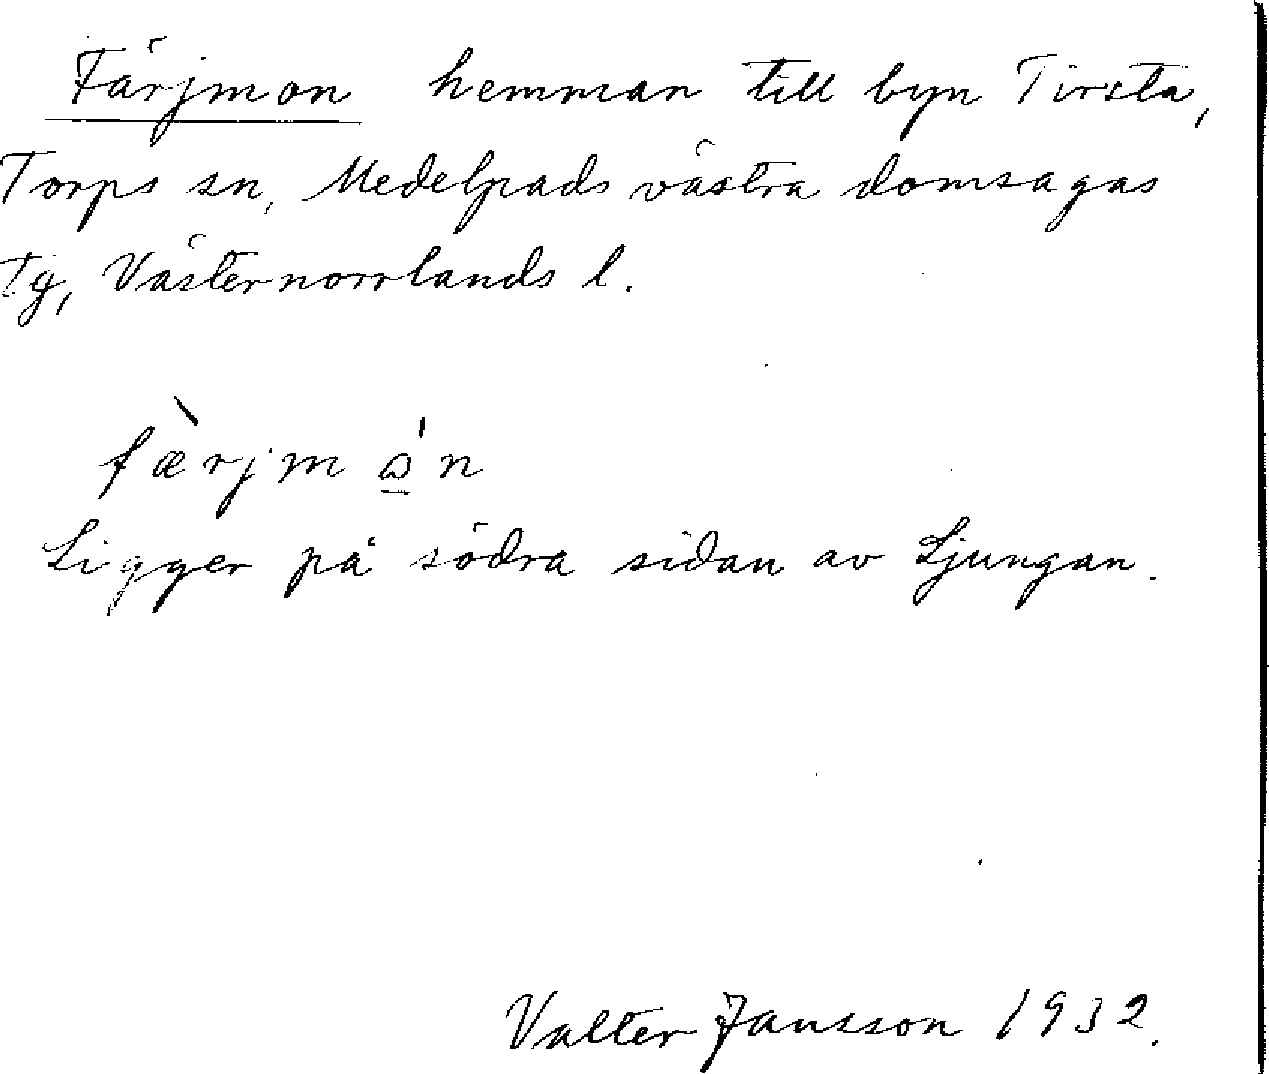 Färjmon hemman till byn Tirsta,
Torps sn, Medelpads västra domsagas
tg, Västernorrlands l.
fæ̀rjmɷ̠́n
Ligger på södra sidan av Ljungan.
Valter Jansson 1932.